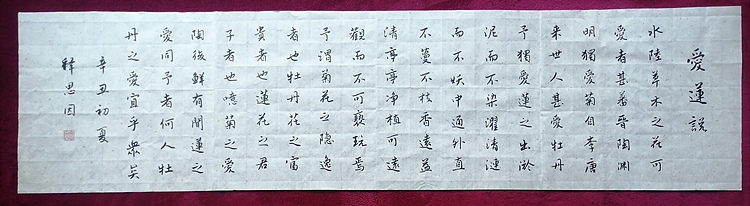 愛蓮說
水陸草木之花可
愛者甚蕃晉陶淵
明獨愛菊自李唐
来世人甚愛牡丹
予獨愛蓮之出淤
泥而不染濯清漣
而不妖中通外直
不蔓不枝香遠益
清亭亭净植可遠
觀而不可褻玩焉
予謂菊花之隐逸
者也牡丹花之富
貴者也蓮花之君
子者也噫菊之愛
陶後鮮有聞蓮之
愛同予者何人牡
丹之愛宜乎衆矣
辛丑初夏
釋思因